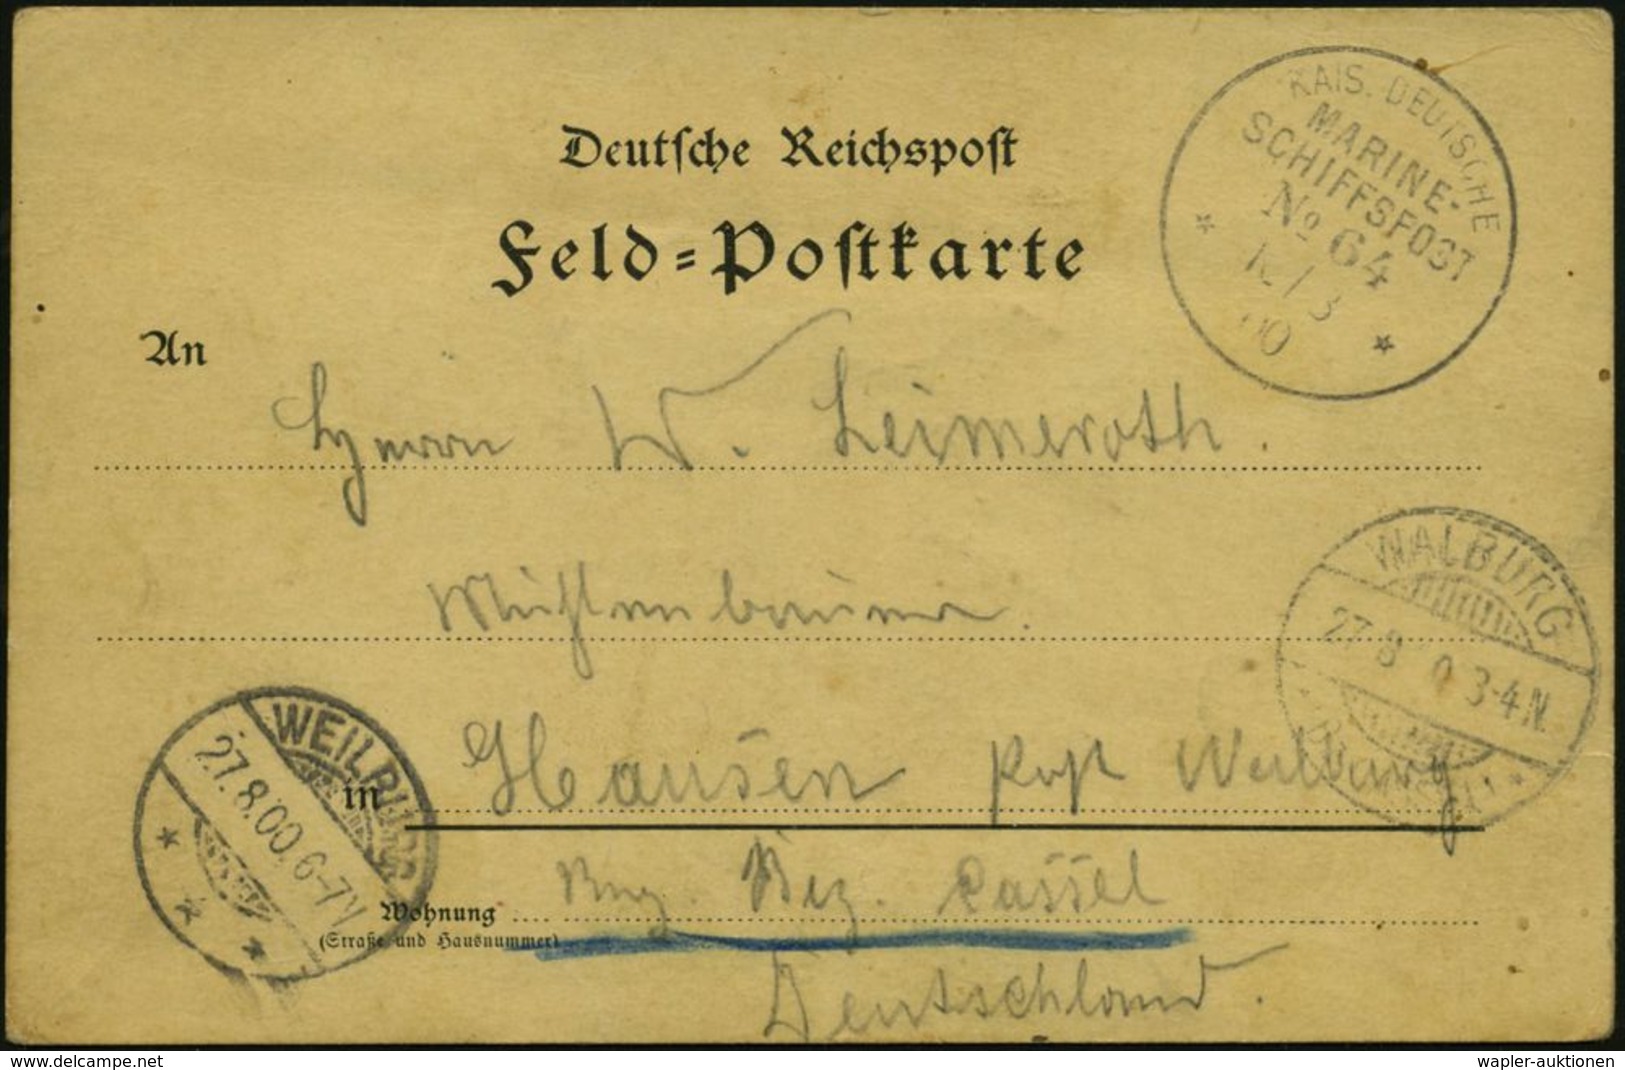 Deutsche Reichspost
Feld=Postkarte
KAIS. DEUTSCHE
MARINE-
SCHIFFSPOST
No 64
/8
00
An
Herrn W. Leimeroth.
WALBURG
27 8 0 3-4 N.
Hausen Post Walburg
in
WEILBURG
27.8.00.6-7V
Bez. Cassel
Wohnung
(Straße und Hausnummer)
Deutschland.
www.delcampe.net
wapler-auktionen